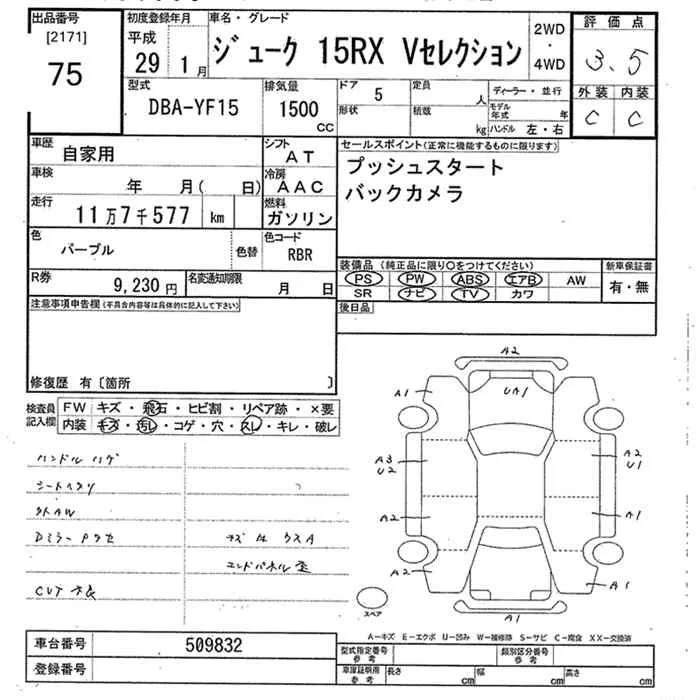 出品番号
[2171]
75
初度登録年月
平成
29 1月
車名・グレード
ジューク 15RX Vセレクション
2WD
・
4WD
評価点
3.5
外装 内装
C C
型式
DBA-YF15
排気量
1500
cc
ドア 5
形状
定員
人
積載
kg
ディーラー・並行
モデル
年式 年
ハンドル 左・右
車歴
自家用
シフト
AT
車検
年 月( 日)
冷房
AAC
走行
11万7千577 km
燃料
ガソリン
色
パープル
色替
色コード
RBR
R券
9,230円
名変通知期限
月 日
セールスポイント(正常に機能するものに限ります)
プッシュスタート
バックカメラ
装備品(純正品に限り○をつけてください)
PS PW ABS エアB AW
SR ナビ TV カワ
新車保証書
有・無
後日品
注意事項申告欄(不具合内容等は具体的に記入して下さい)
修復歴 有〔箇所 〕
検査員
記入欄
FW キズ・飛石・ヒビ割・リペア跡・×要
内装 キズ・汚レ・コゲ・穴・スレ・キレ・破レ
ハンドル ハゲ
シートヘタリ
外AW
Dミラー
エンドパネル
CVT
A2
A1
UA1
A3
U2
A2
U1
A2
A1
A2
A1
A1
スペア
A-キズ E-エクボ U-凹み W-補修跡 S-サビ C-腐食 XX-交換済
車台番号
509832
登録番号
型式指定番号
参考
類別区分番号
参考
車庫証明用
参考
長さ cm
幅 cm
高さ cm